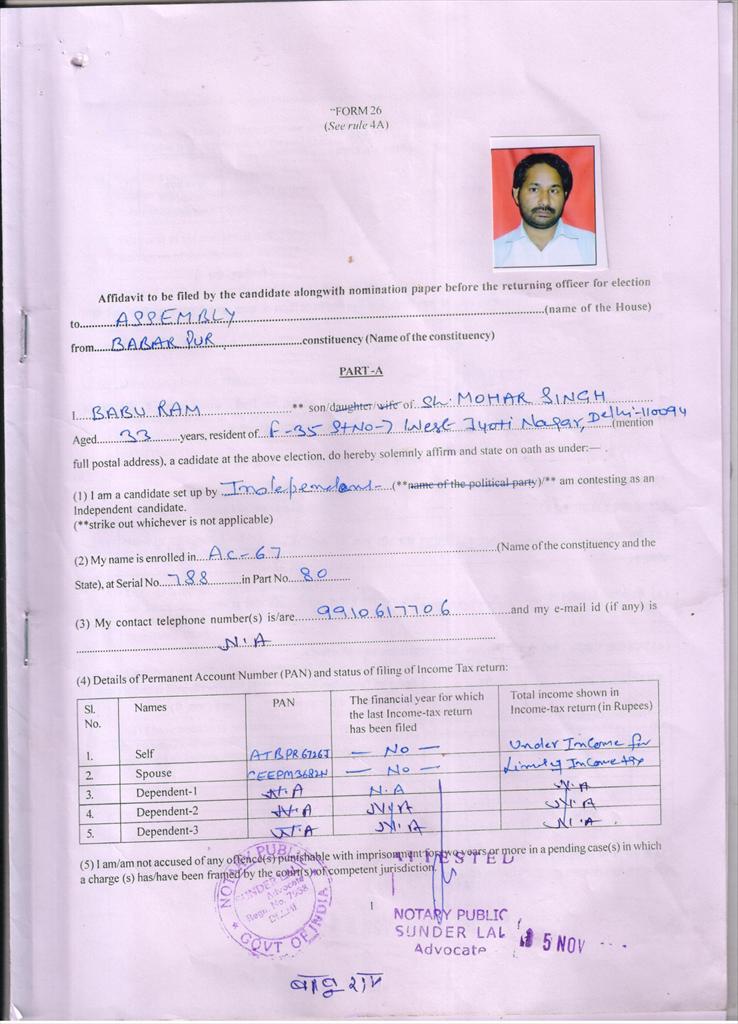 "FORM 26
(See rule 4A)
Affidavit to be filed by the candidate alongwith nomination paper before the returning officer for election
to....ASSEMBLY....(name of the House)
from....BABAR PUR....constituency (Name of the constituency)
PART-A
I. BABU RAM ....** son/daughter/wife of Sh. MOHAR SINGH
Aged....33....years, resident of...F-35 St No-7 West Jyoti Nagar, Delhi-110094 (mention
full postal address), a cadidate at the above election, do hereby solemnly affirm and state on oath as under:—
(1) I am a candidate set up by Independent (**name of the political party)/** am contesting as an
Independent candidate.
(**strike out whichever is not applicable)
(2) My name is enrolled in...AC-67....(Name of the constituency and the
State), at Serial No...788....in Part No...80....
(3) My contact telephone number(s) is/are....9910617706....and my e-mail id (if any) is
N.A
(4) Details of Permanent Account Number (PAN) and status of filing of Income Tax return:
Sl. No. Names PAN The financial year for which the last Income-tax return has been filed Total income shown in Income-tax return (in Rupees)
1. Self ATBPR6726J — No — Under Income for
2. Spouse CEEPM3682N — No — Limit of Income tax
3. Dependent-1 N.A N.A N.A
4. Dependent-2 N.A N.A N.A
5. Dependent-3 N.A N.A N.A
(5) I am/am not accused of any offence(s) punishable with imprisonment for two years or more in a pending case(s) in which
a charge (s) has/have been framed by the court(s) of competent jurisdiction.
ATTESTED
1
NOTARY PUBLIC
SUNDER LAL
Advocate
Regn. No. 7958
DELHI
GOVT OF INDIA
NOTARY PUBLIC
SUNDER LAL
Advocate
5 NOV
बाबू राम